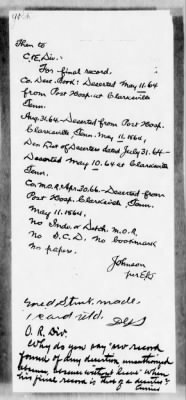 Then to
C.&E. Div.:
For final record.
Co. Desc. Book: Deserted May 11.64
from Post Hosp. at Clarksville
Tenn.
Aug.31.64- Deserted from Post Hosp.
Clarksville, Tenn. May 11, 1864,
Des. List of Deserters dated July 31.64-
Deserted May 10.64 at Clarksville
Tenn.
Co. M.O.R. Apr.30.66- Deserted from
Post Hosp. Clarksville, Tenn.
May 11, 1864,
No Inda. or Detch. M.O.R.
No D.C.D. No bookmark
No papers.
Johnson
per
made.
1 card retd.
O. R. Div.
Why do you say "no record
found of any desertion
absence without leave" when
his final record is that of a deserter?